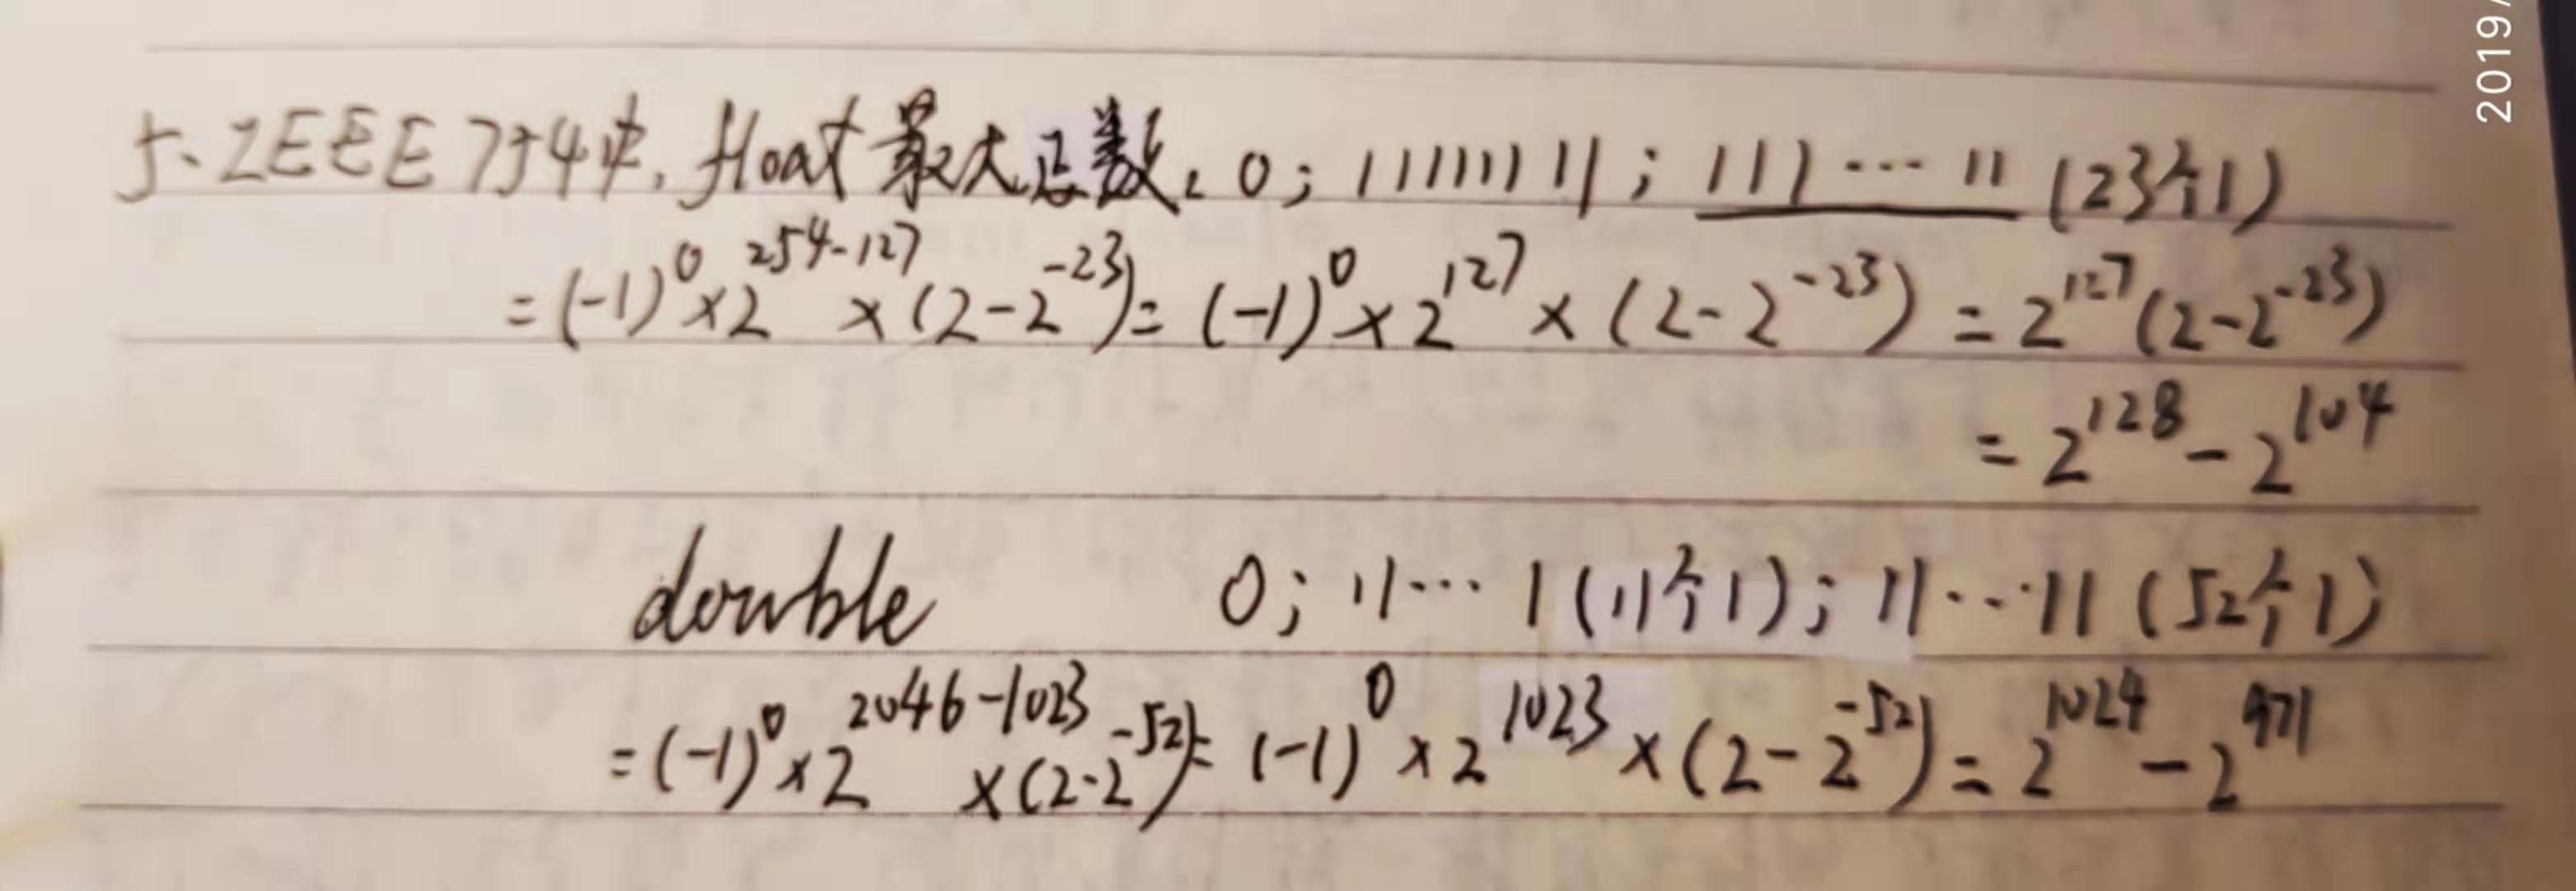 5、IEEE754中,float最大正数:0;11111111;111…11(23个1)
=(-1)⁰×2²⁵⁴⁻¹²⁷×(2-2⁻²³)=(-1)⁰×2¹²⁷×(2-2⁻²³)=2¹²⁷(2-2⁻²³)
=2¹²⁸-2¹⁰⁴
double 0;11…1(11个1);11…11(52个1)
=(-1)⁰×2²⁰⁴⁶⁻¹⁰²³×(2-2⁻⁵²)=(-1)⁰×2¹⁰²³×(2-2⁻⁵²)=2¹⁰²⁴-2⁹⁷¹
2019/